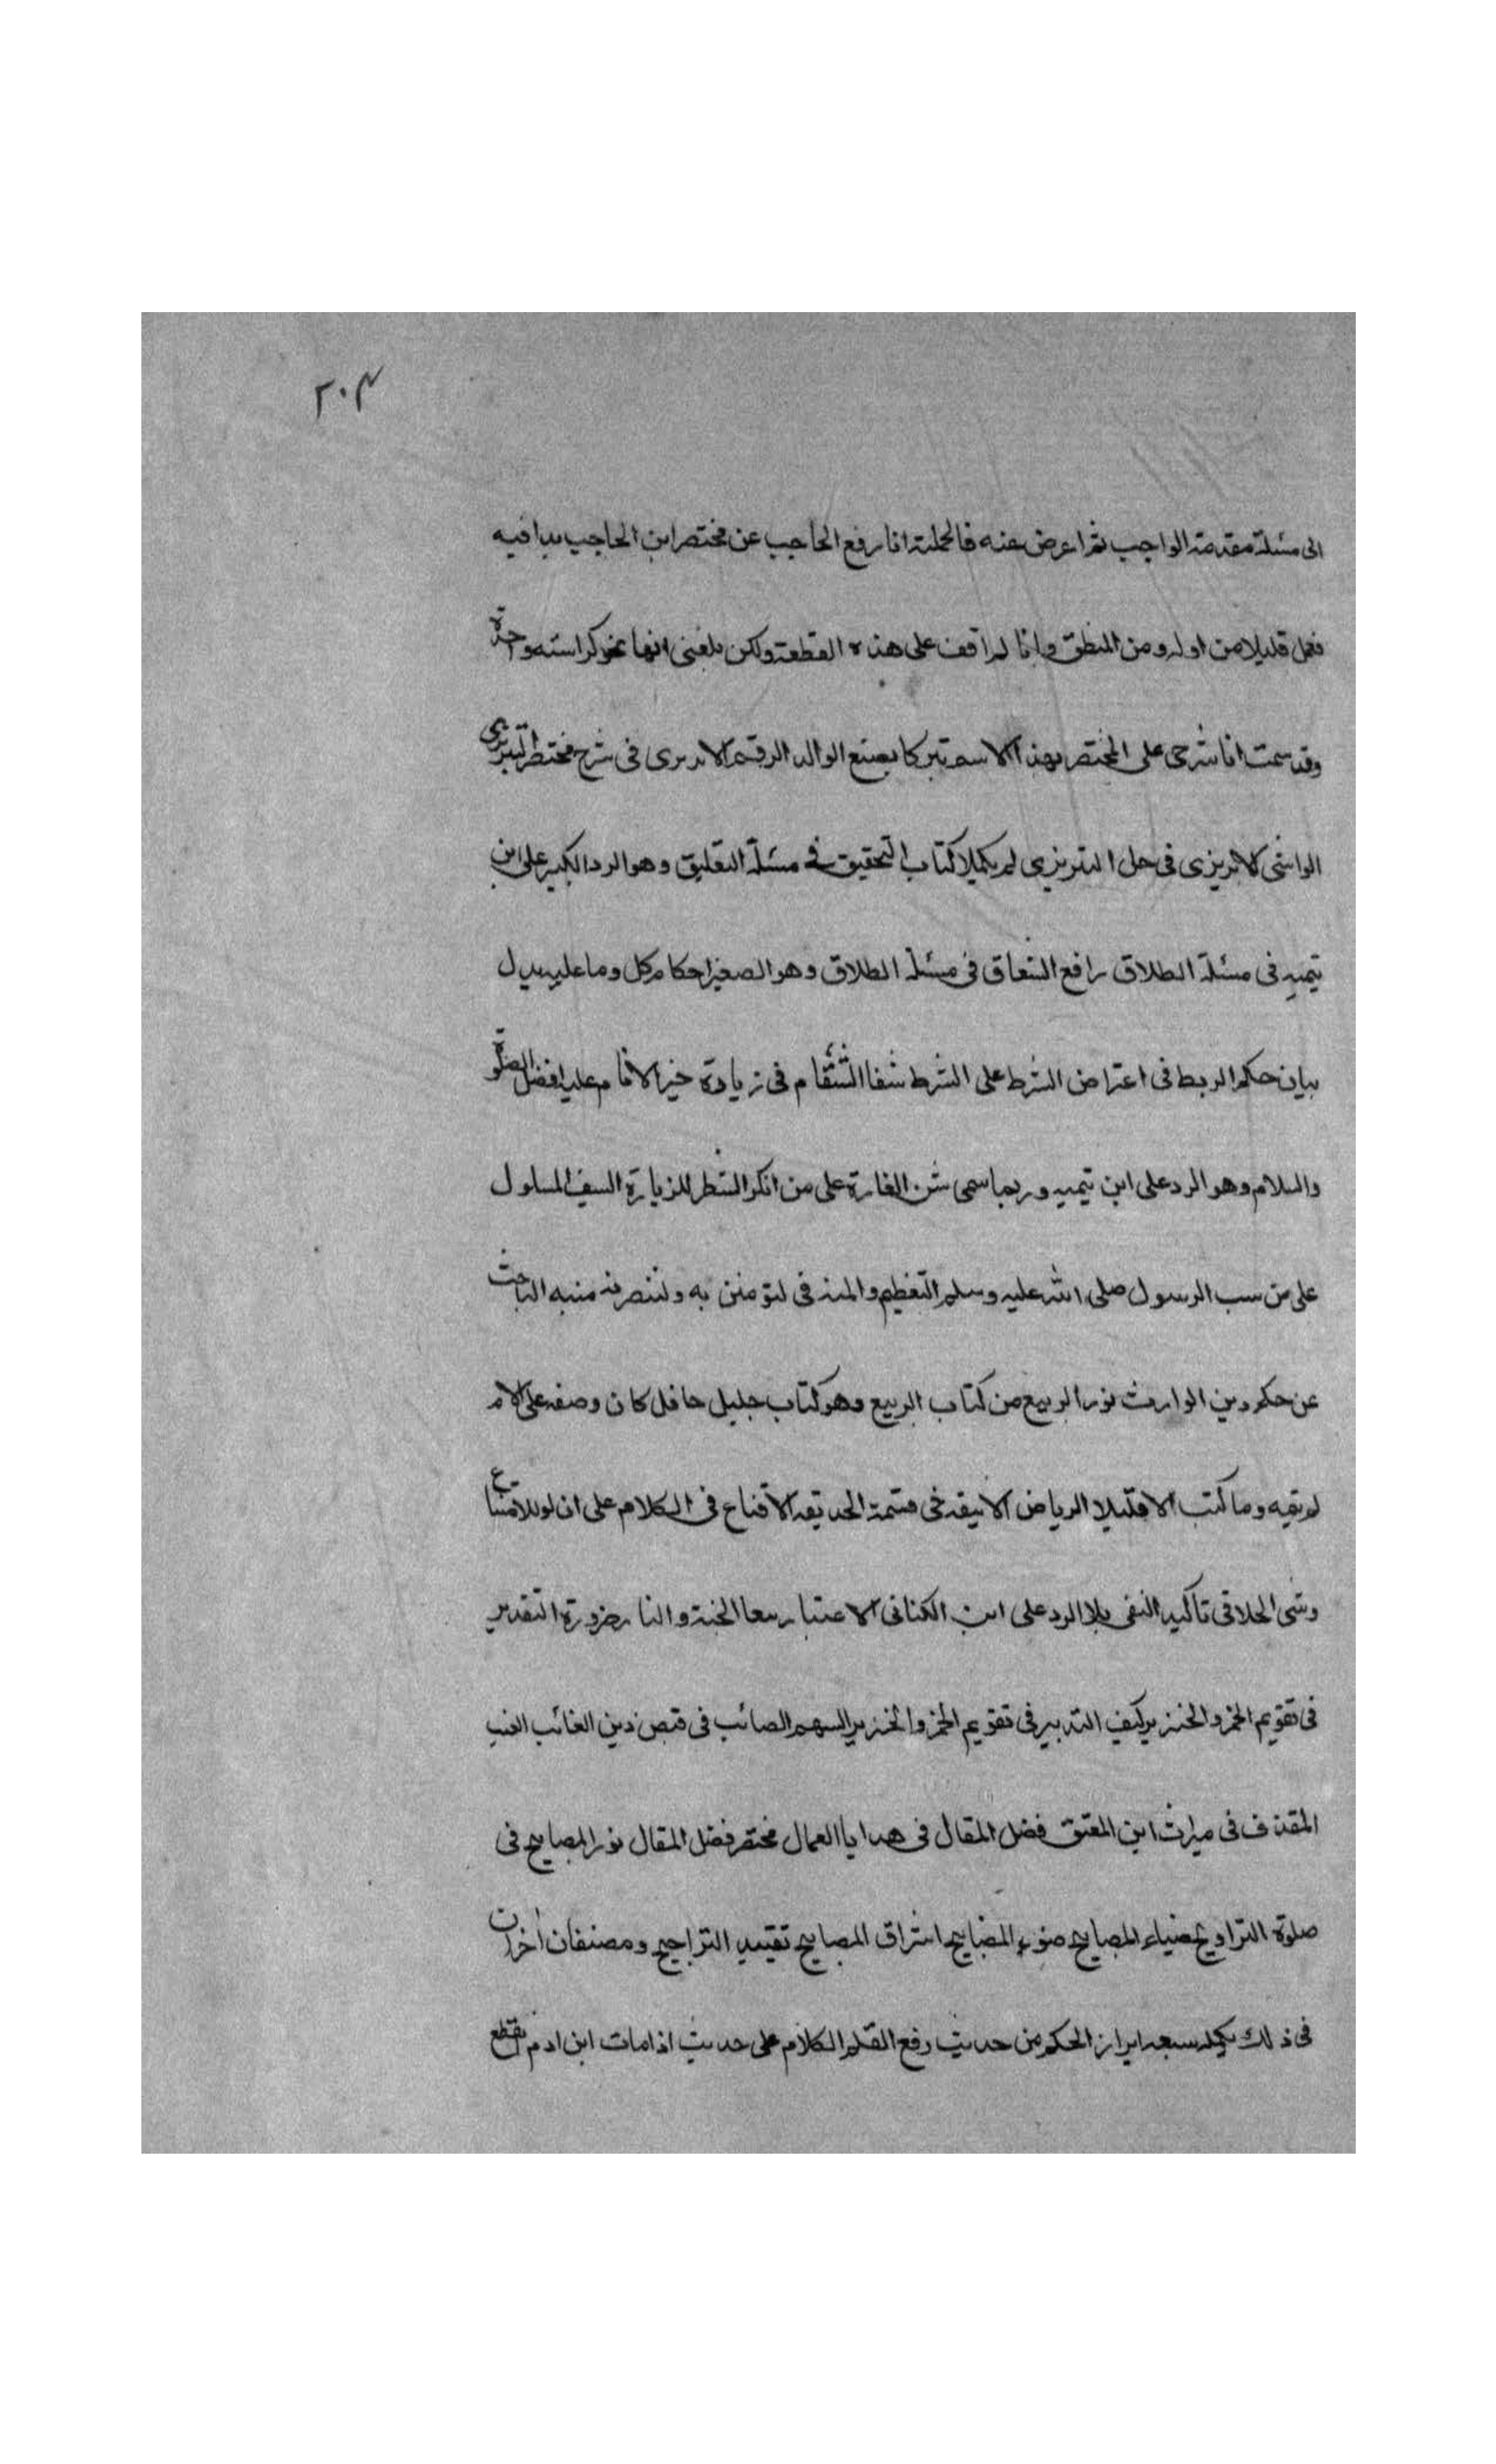 ٢٠٤
الى مسئلة مقدمة الواجب ثم اعرض عنه فاكملته انا رفع الحاجب عن مختصر ابن الحاجب بدا فيه
فعمل قليلا من اوله ومن المنطق وانا لم اقف على هذه القطعة ولكن بلغنى انها نحو كراسته واحدة
وقد سمت انا شرحى على المختصر بهذا الاسم تبركا بصنع الوالد الرقم الابريرى فى شرح مختصر التبريزى
الواشى الابريزى فى حل التبريزى لم يكملا كتاب التحقيق فى مسئلة التعليق وهو الرد الكبير على ابن
تيميه فى مسئلة الطلاق رافع الشقاق فى مسئلة الطلاق وهو الصغير احكام كل وما عليه يدل
بيان حكم الربط فى اعتراض الشرط على الشرط شفا السقام فى زيادة خير الانام عليه افضل الصلوة
والسلام وهو الرد على ابن تيميه وربما سمى شن الغارة على من انكر السفر للزيارة السيف المسلول
على من سب الرسول صلى الله عليه وسلم التعظيم والمنه فى لتؤمنن به ولتنصرنه منبه الباحث
عن حكم دين الوارث نور الربيع من كتاب الربيع وهو كتاب جليل حافل كان وصفه على الام
لم يتمه وما كتب الا قليلا الرياض الانيقه فى قسمة الحديقه الاقناع فى الكلام على ان لو للامتناع
وشى الحلا فى تاكيد النفى بلا الرد على ابن الكنانى الاعتبار ببقا الجنة والنار ضرورة التقدير
فى تقويم الخمر والخنزير كيف التدبير فى تقويم الخمر والخنزير السهم الصائب فى قبض دين الغائب الغيث
المغدق فى ميراث ابن المعتق فضل المقال فى هدايا العمال مختصر فضل المقال نور المصابيح فى
صلوة التراويح ضياء المصابيح ضوء المصابيح اشراق المصابيح تقييد التراجيح ومصنفان اخران
فى ذلك تكمله سبعه ابراز الحكم من حديث رفع القلم الكلام على حديث اذا مات ابن ادم انقطع